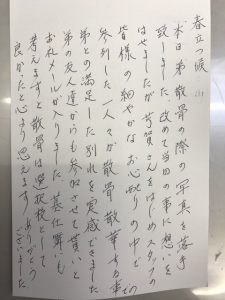 春立つ候
本日弟散骨の際の写真を落手
致しました 改めて当日の事に想いを
はせましたが 芳賀さんをはじめスタッフの
皆様の細やかなお心配りの中での
参列した一人々が散骨 散華する事で
弟との満足した別れを実感できました
弟の友人達からも参加させて貰いと
お礼メールが入りました 墓仕舞いも
考えますと散骨は選択肢として
良かったと心より思えます ありがとう
ございました